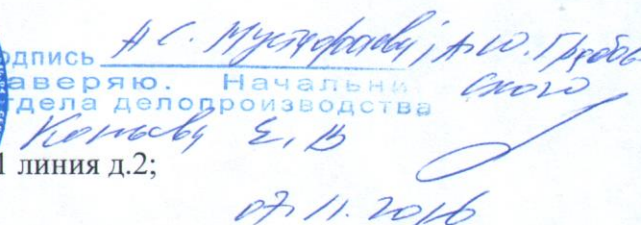 одпись А.С. Мустафаева, А.Ю. Грабов
аверяю. Начальни ского
тдела делопроизводства
Е. В
1 линия д.2;
07.11.2016